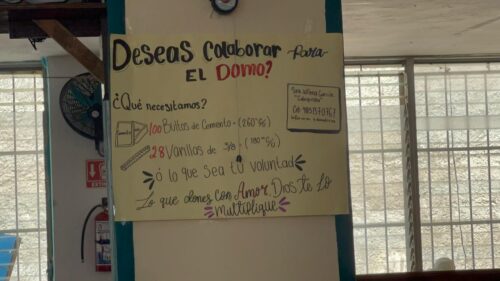 Deseas Colaborar para
EL DOMO?
¿Qué necesitamos?
100 Bultos de Cemento = (260 c/u)
28 Varillas de 3/8 = (180 c/u)
ó lo que Sea tU voluntad
Lo que dones con Amor, Dios te Lo
Multiplique